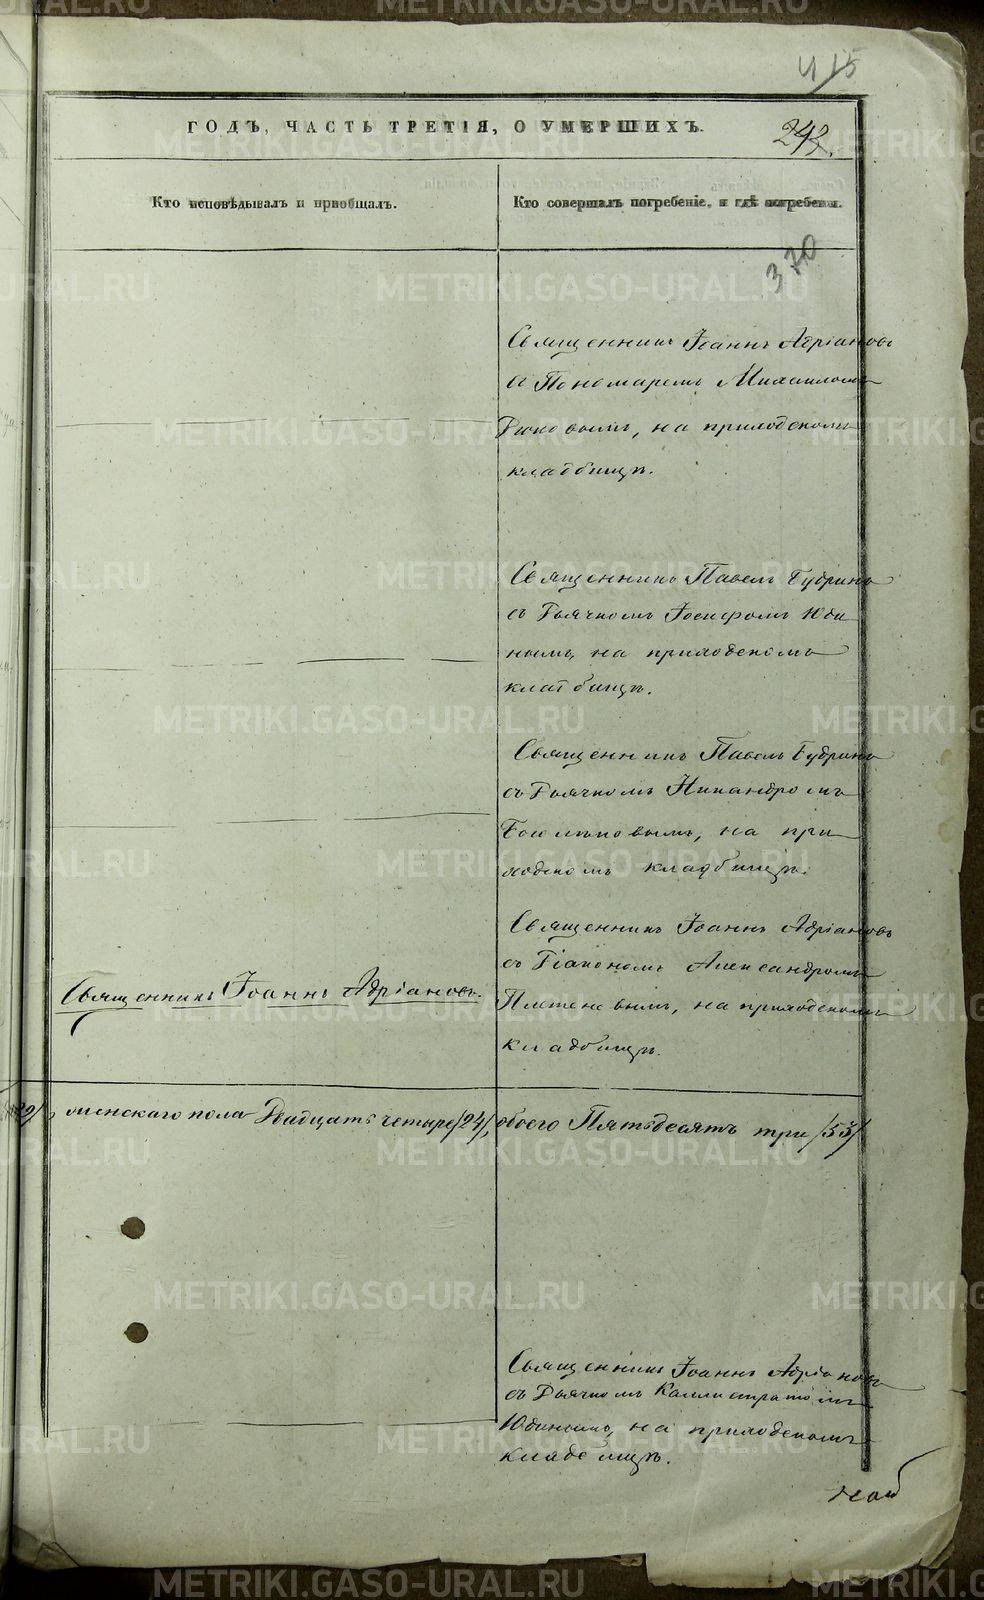 415
ГОДЪ, ЧАСТЬ ТРЕТІЯ, О УМЕРШИХЪ.
243.
Кто исповѣдывалъ и пріобщалъ.
Кто совершалъ погребеніе, и гдѣ погребены.
370
Священникъ Іоаннъ Адріановъ
съ Пономаремъ Михаиломъ
на приходскомъ
кладбищѣ.
Священникъ Павелъ Бубринъ
съ Дьячкомъ Іосифомъ Юди
нымъ, на приходскомъ
кладбищѣ.
Священникъ Павелъ Бубринъ
съ Дьячкомъ Никандромъ
на при
ходскомъ кладбищѣ.
Священникъ Іоаннъ Адріановъ
съ Діакономъ Александромъ
Плетеневымъ, на приходскомъ
кладбищѣ.
Священникъ Іоаннъ Адріановъ.
29/, женскаго пола Двадцать четыре /24/, обоего Пятьдесятъ три /53/
Священникъ Іоаннъ Адріановъ
съ Дьячкомъ Каллистратомъ
Юдинымъ, на приходскомъ
кладбищѣ.
METRIKI.GASO-URAL.RU